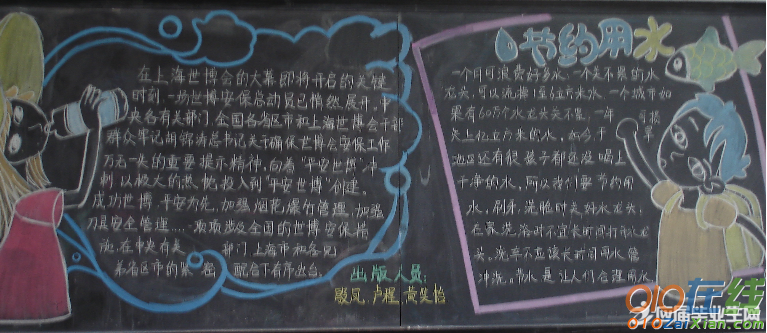 在上海世博会的大幕即将开启的关键
时刻,一场世博安保启动员已悄然展开,中
央各有关部门、全国各省区市和上海世博会干部
群众牢记胡锦涛总书记关于确保世博会安保工作
万无一失的重要提示精神,向着"平安世博"冲
刺,以极大的热忱投入到"平安世博"创建。
成功世博,平安为先,加强烟花爆竹管理,加强
刀具安全管理……一项项涉及全国的世博安保措
施,在中央有关部门、上海市和各兄
弟省区市的紧密配合下有序出台。
出版人员:
殷凤、卢程、黄笑怡
节约用水
一个月可浪费好多水,一个关不紧的水
龙头,可以流掉1至6立方米水,一个城市如
果有60万个水龙头关不紧,一年可损
失上亿立方米的水,如今干旱
地区还有很多孩子都还没喝上
干净的水,所以我们要节约用
水,刷牙、洗脸时关好水龙头;
在幕洗浴时不宜长时间打开龙
头,洗车不应该长时间用水管
冲洗。节水是让人们合理用水,
010在线
应届毕业生网
010ZaiXian.com